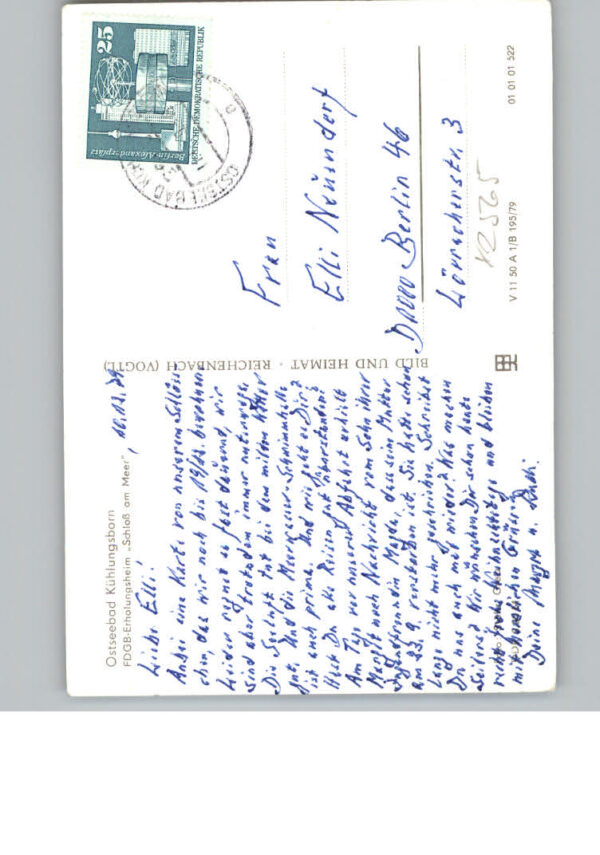 Ostseebad Kühlungsborn
FDGB-Erholungsheim „Schloß am Meer"
, 16.12.79
Liebe Elli!
Anbei eine Karte von unserem Schlöss-
chen, das wir noch bis 19/12. bewohnen
Leider regnet es fast dauernd, wir
sind aber trotzdem immer unterwegs.
Die Seeluft tut bei dem milden Wetter
gut. Und die Meerwasser-Schwimmhalle
ist auch prima. Und wie geht es Dir?
Hast Du alle Reisen gut überstanden?
Am Tag vor unserer Abfahrt erhielt
Margot noch Nachricht vom Sohn ihrer
Jugendfreundin, dass seine Mutter
am 23.9. verstorben ist. Sie hatte schon
lange nicht mehr geschrieben. Schreibst
Du uns auch mal wieder? Was machen
Wir wünschen Dir schon heute
recht frohe Weihnachtstage und bleiben
mit Grüssen
Deine Margot u.
BILD UND HEIMAT · REICHENBACH (VOGTL)
25
DEUTSCHE DEMOKRATISCHE REPUBLIK
Berlin-Alexanderplatz
OSTSEEBAD
Frau
Elli Neuendorf
D1000 Berlin 46
Lörracherstr. 3
V 11 50 A 1/B 195/79
01 01 01 522